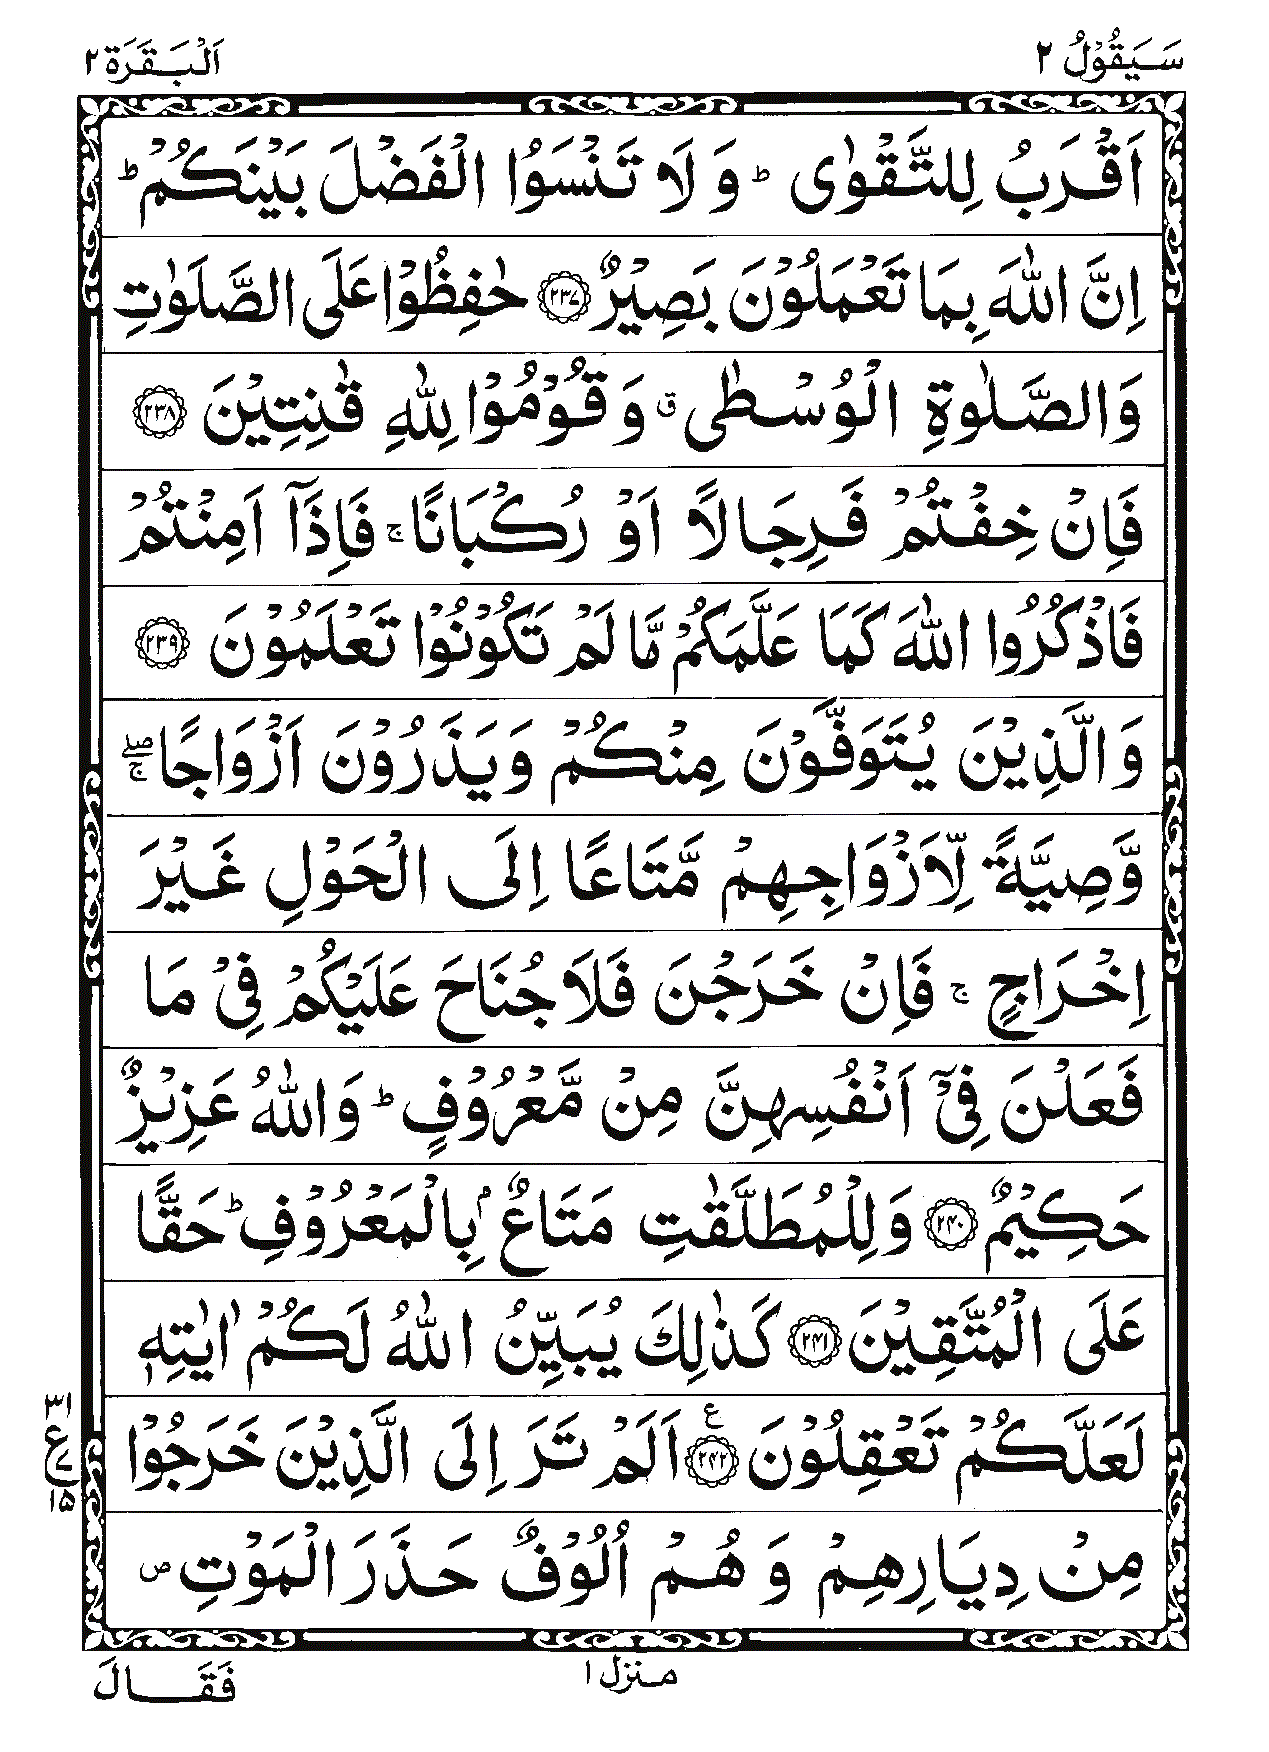 سَيَقُوْلُ ٢
اَلْبَقَرَة ٢
اَقْرَبُ لِلتَّقْوٰى ؕ وَ لَا تَنْسَوُا الْفَضْلَ بَيْنَكُمْ ؕ
اِنَّ اللّٰهَ بِمَا تَعْمَلُوْنَ بَصِيْرٌ ﴿۲۳۷﴾ حٰفِظُوْا عَلَى الصَّلَوٰتِ
وَالصَّلٰوةِ الْوُسْطٰى ۗ وَ قُوْمُوْا لِلّٰهِ قٰنِتِيْنَ ﴿۲۳۸﴾
فَاِنْ خِفْتُمْ فَرِجَالًا اَوْ رُكْبَانًا ۚ فَاِذَاۤ اَمِنْتُمْ
فَاذْكُرُوا اللّٰهَ كَمَا عَلَّمَكُمْ مَّا لَمْ تَكُوْنُوْا تَعْلَمُوْنَ ﴿۲۳۹﴾
وَالَّذِيْنَ يُتَوَفَّوْنَ مِنْكُمْ وَيَذَرُوْنَ اَزْوَاجًا ۖۚ
وَّصِيَّةً لِّاَزْوَاجِهِمْ مَّتَاعًا اِلَى الْحَوْلِ غَيْرَ
اِخْرَاجٍ ۚ فَاِنْ خَرَجْنَ فَلَا جُنَاحَ عَلَيْكُمْ فِىْ مَا
فَعَلْنَ فِىْۤ اَنْفُسِهِنَّ مِنْ مَّعْرُوْفٍ ؕ وَاللّٰهُ عَزِيْزٌ
حَكِيْمٌ ﴿۲۴۰﴾ وَلِلْمُطَلَّقٰتِ مَتَاعٌ ۢ بِالْمَعْرُوْفِ ؕ حَقًّا
عَلَى الْمُتَّقِيْنَ ﴿۲۴۱﴾ كَذٰلِكَ يُبَيِّنُ اللّٰهُ لَكُمْ اٰيٰتِهٖ
لَعَلَّكُمْ تَعْقِلُوْنَ ﴿۲۴۲﴾ ع اَلَمْ تَرَ اِلَى الَّذِيْنَ خَرَجُوْا
٣١
ع ٧
١٥
مِنْ دِيَارِهِمْ وَ هُمْ اُلُوْفٌ حَذَرَ الْمَوْتِ ص
منزل ١
فَقَالَ